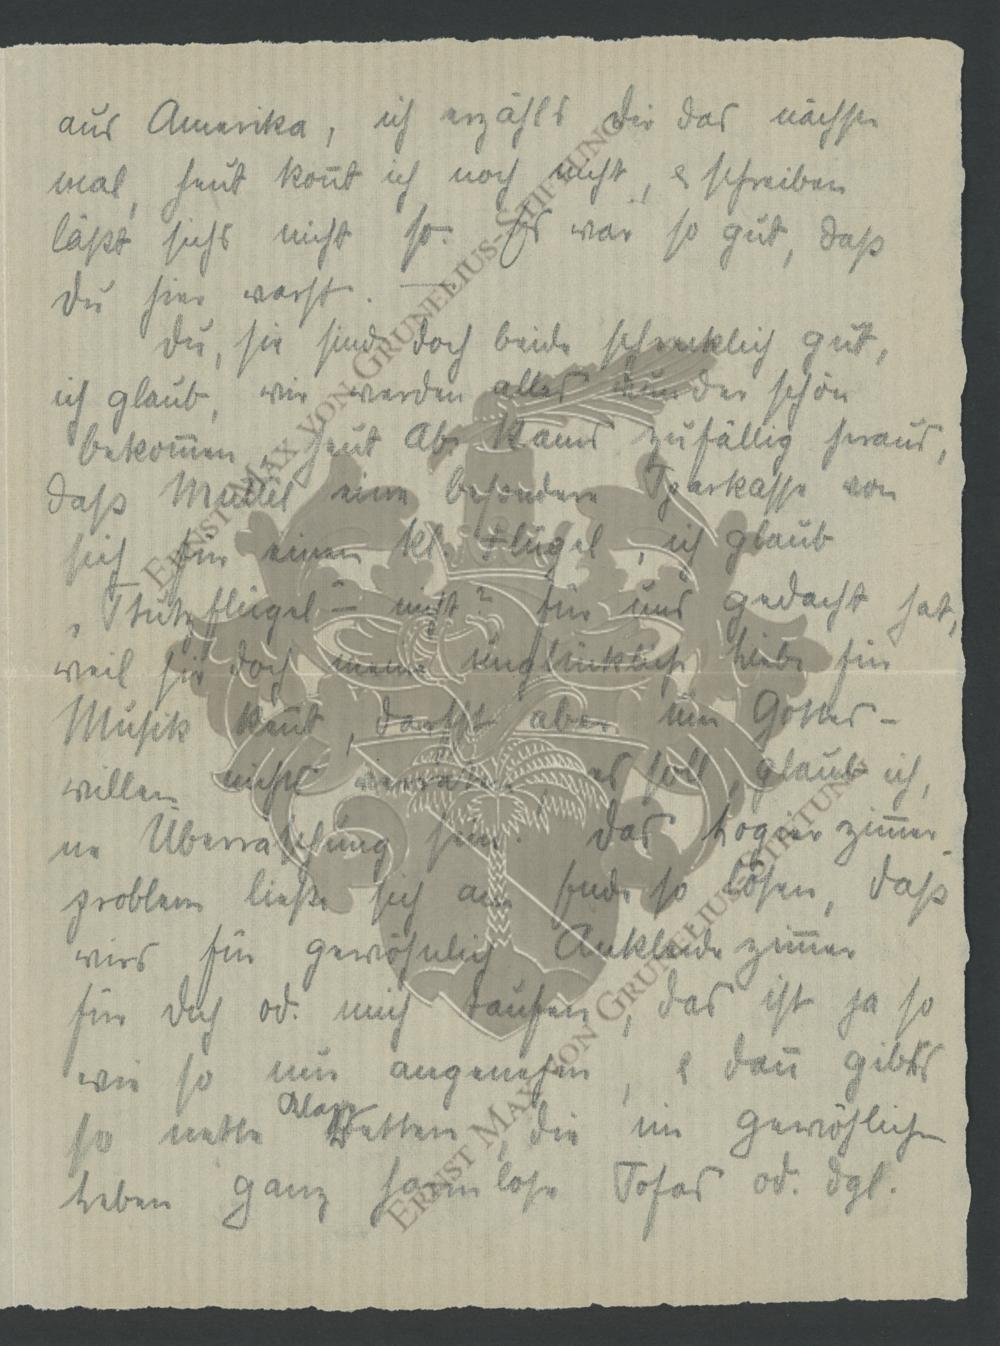 aus Amerika, ich erzähls Dir das nächste
mal, heut kon̄t ich noch nicht, & schreiben
läßt sichs nicht so. Es war so gut, daß
Du hier warst. —
Du, sie sind doch beide schrecklich gut,
ich glaub, wir werden alles wunder schön
bekom̄en, heut Ab. kams zufällig heraus,
daß Mutti eine besondere Sparkasse von
sich für einen kl. Flügel, ich glaub
„Stutzflügel" – nicht? für uns gedacht hat,
weil sie doch meine unglückliche Liebe für
Musik ken̄t, darfst aber um Gottes-
willen nichts verraten es soll, glaub ich,
ne Überraschung sein! Das Logierzim̄er
problem ließe sich am Ende so lösen, daß
wirs für gewöhnlich Ankleidezim̄er
für Dich od. mich taufen, das ist ja so
wie so nur angenehm, & dan̄ gibts
so nette Klapp Betten, die im gewöhlichen
Leben ganz harmlose Sofas od. dgl.
ERNST MAX VON GRUNELIUS-STIFTUNG
ERNST MAX VON GRUNELIUS-STIFTUNG